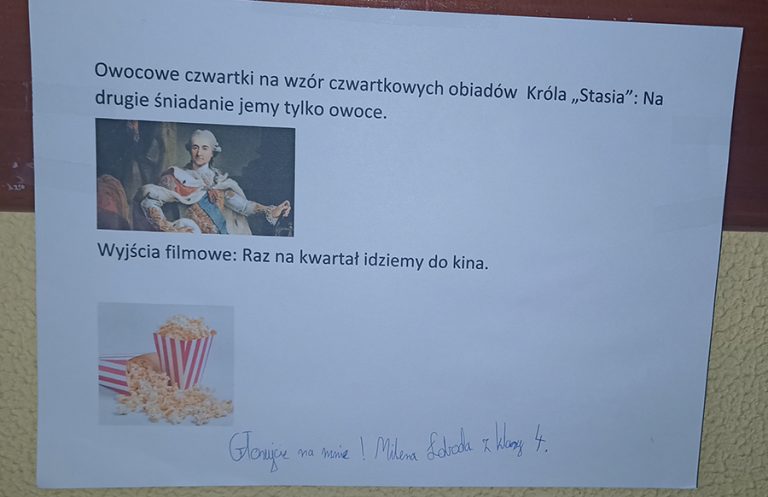 Owocowe czwartki na wzór czwartkowych obiadów Króla „Stasia”: Na
drugie śniadanie jemy tylko owoce.
Wyjścia filmowe: Raz na kwartał idziemy do kina.
Głosujcie na mnie! Milena Łoboda z klasy 4.